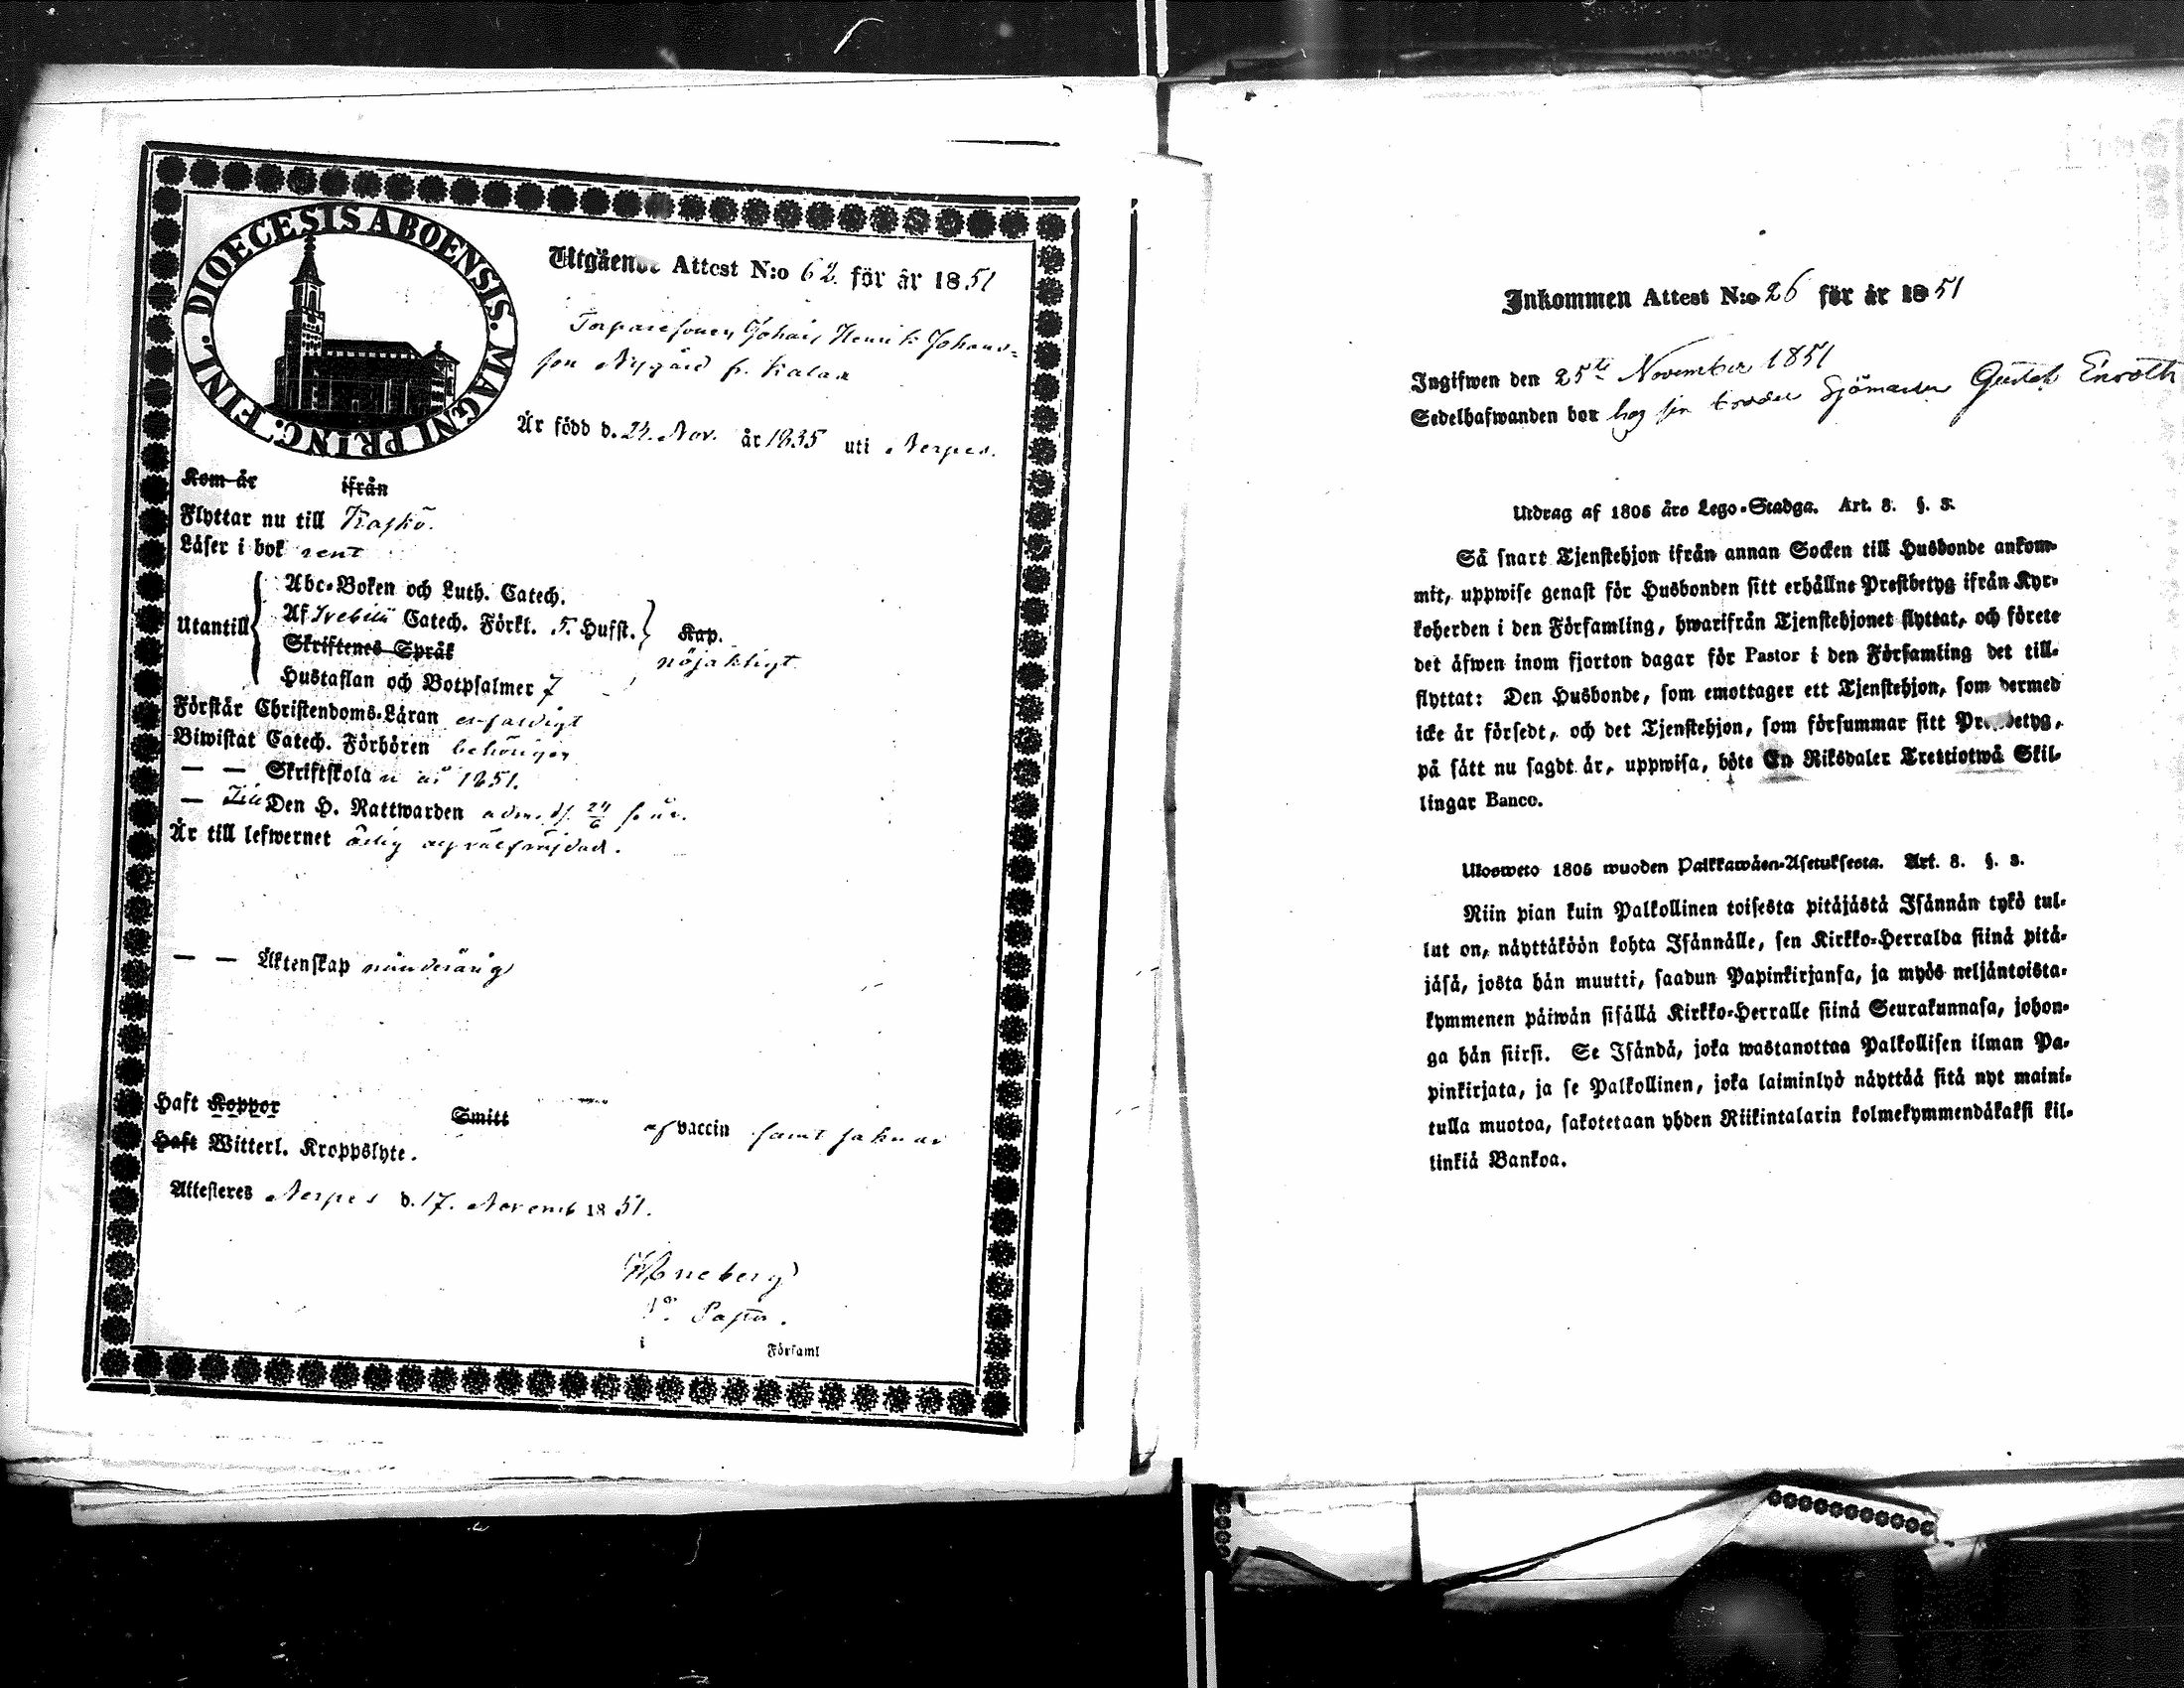 DIOECESIS ABOENSIS. MAGNI PRINC. FINL.
Utgående Attest N:o 62 för år 1851
Torparesonen Johan Henrik Johans=
son Nygård fr. Kalax
Är född d. 24. Nov. år 1835 uti Nerpes.
Kom år ifrån
Flyttar nu till Kaskö.
Läser i bok rent
Utantill
Abc-Boken och Luth. Catech.
Af Svebilii Catech. Förkl. 5. Hufst. Kap.
Skriftenes Språk
nöjaktigt
Hustaflan och Botpsalmer 7
Förstår Christendoms-Läran enfaldigt
Biwistat Catech. Förhören behörigen
— — Skriftskola n år 1851.
— Till Den H. Nattwarden adm. d. 24/6 s. år.
Är till lefwernet ärlig och välfrejdad.
— — Äktenskap minderårig
Haft Koppor Smitt af vaccin samt
Haft Witterl. Kroppslyte.
Attesteres Nerpes d. 17. Novemb 1851.
Pastor.
Församl
Inkommen Attest N:o 26 för år 1851
Ingifwen den 25te November 1851
Sedelhafwanden bor hos sin broder Sjömannen Gustaf Enroth
Utdrag af 1805 års Lego-Stadga. Art. 8. §. 3.
Så snart Tjenstehjon ifrån annan Socken till Husbonde ankom-
mit, uppwise genast för Husbonden sitt erhållne Prestbetyg ifrån Kyr-
koherden i den Församling, hwarifrån Tjenstehjonet flyttat, och förete
det äfwen inom fjorton dagar för Pastor i den Församling det till-
flyttat: Den Husbonde, som emottager ett Tjenstehjon, som dermed
icke är försedt, och det Tjenstehjon, som försummar sitt Prestbetyg,
på sätt nu sagdt är, uppwisa, böte En Riksdaler Trettiotwå Skil-
lingar Banco.
Ulosweto 1805 wuoden Palkkawäen-Asetuksesta. Art. 8. §. 3.
Niin pian kuin Palkollinen toisesta pitäjästä Isännän tykö tul-
lut on, näyttäköön kohta Isännälle, sen Kirkko-Herralda siinä pitä-
jäsä, josta hän muutti, saadun Papinkirjansa, ja myös neljäntoista-
kymmenen päiwän sisällä Kirkko-Herralle siinä Seurakunnasa, johon-
ga hän siirsi. Se Isändä, joka wastanottaa Palkollisen ilman Pa-
pinkirjata, ja se Palkollinen, joka laiminlyö näyttää sitä nyt maini-
tulla muotoa, sakotetaan yhden Riikintalarin kolmekymmendäkaksi kil-
linkiä Bankoa.